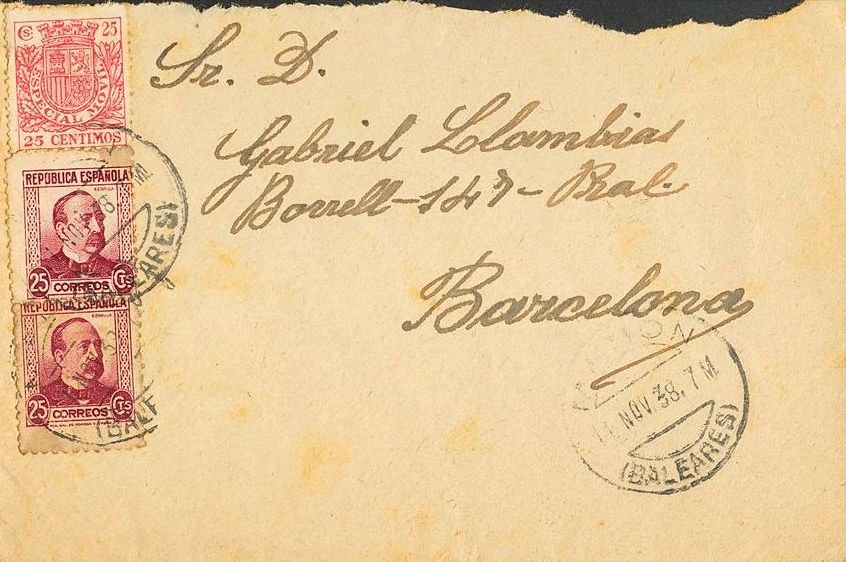 Cs. 25
ESPECIAL MOVIL
25 CENTIMOS
REPÚBLICA ESPAÑOLA
25 CORREOS CTS
REPÚBLICA ESPAÑOLA
25 CORREOS CTS
(BALEARES)
(BALE
Sr. D.
Gabriel Llambias
Borrell-147-Pral.
Barcelona
MAHON
NOV.38.7M.
(BALEARES)